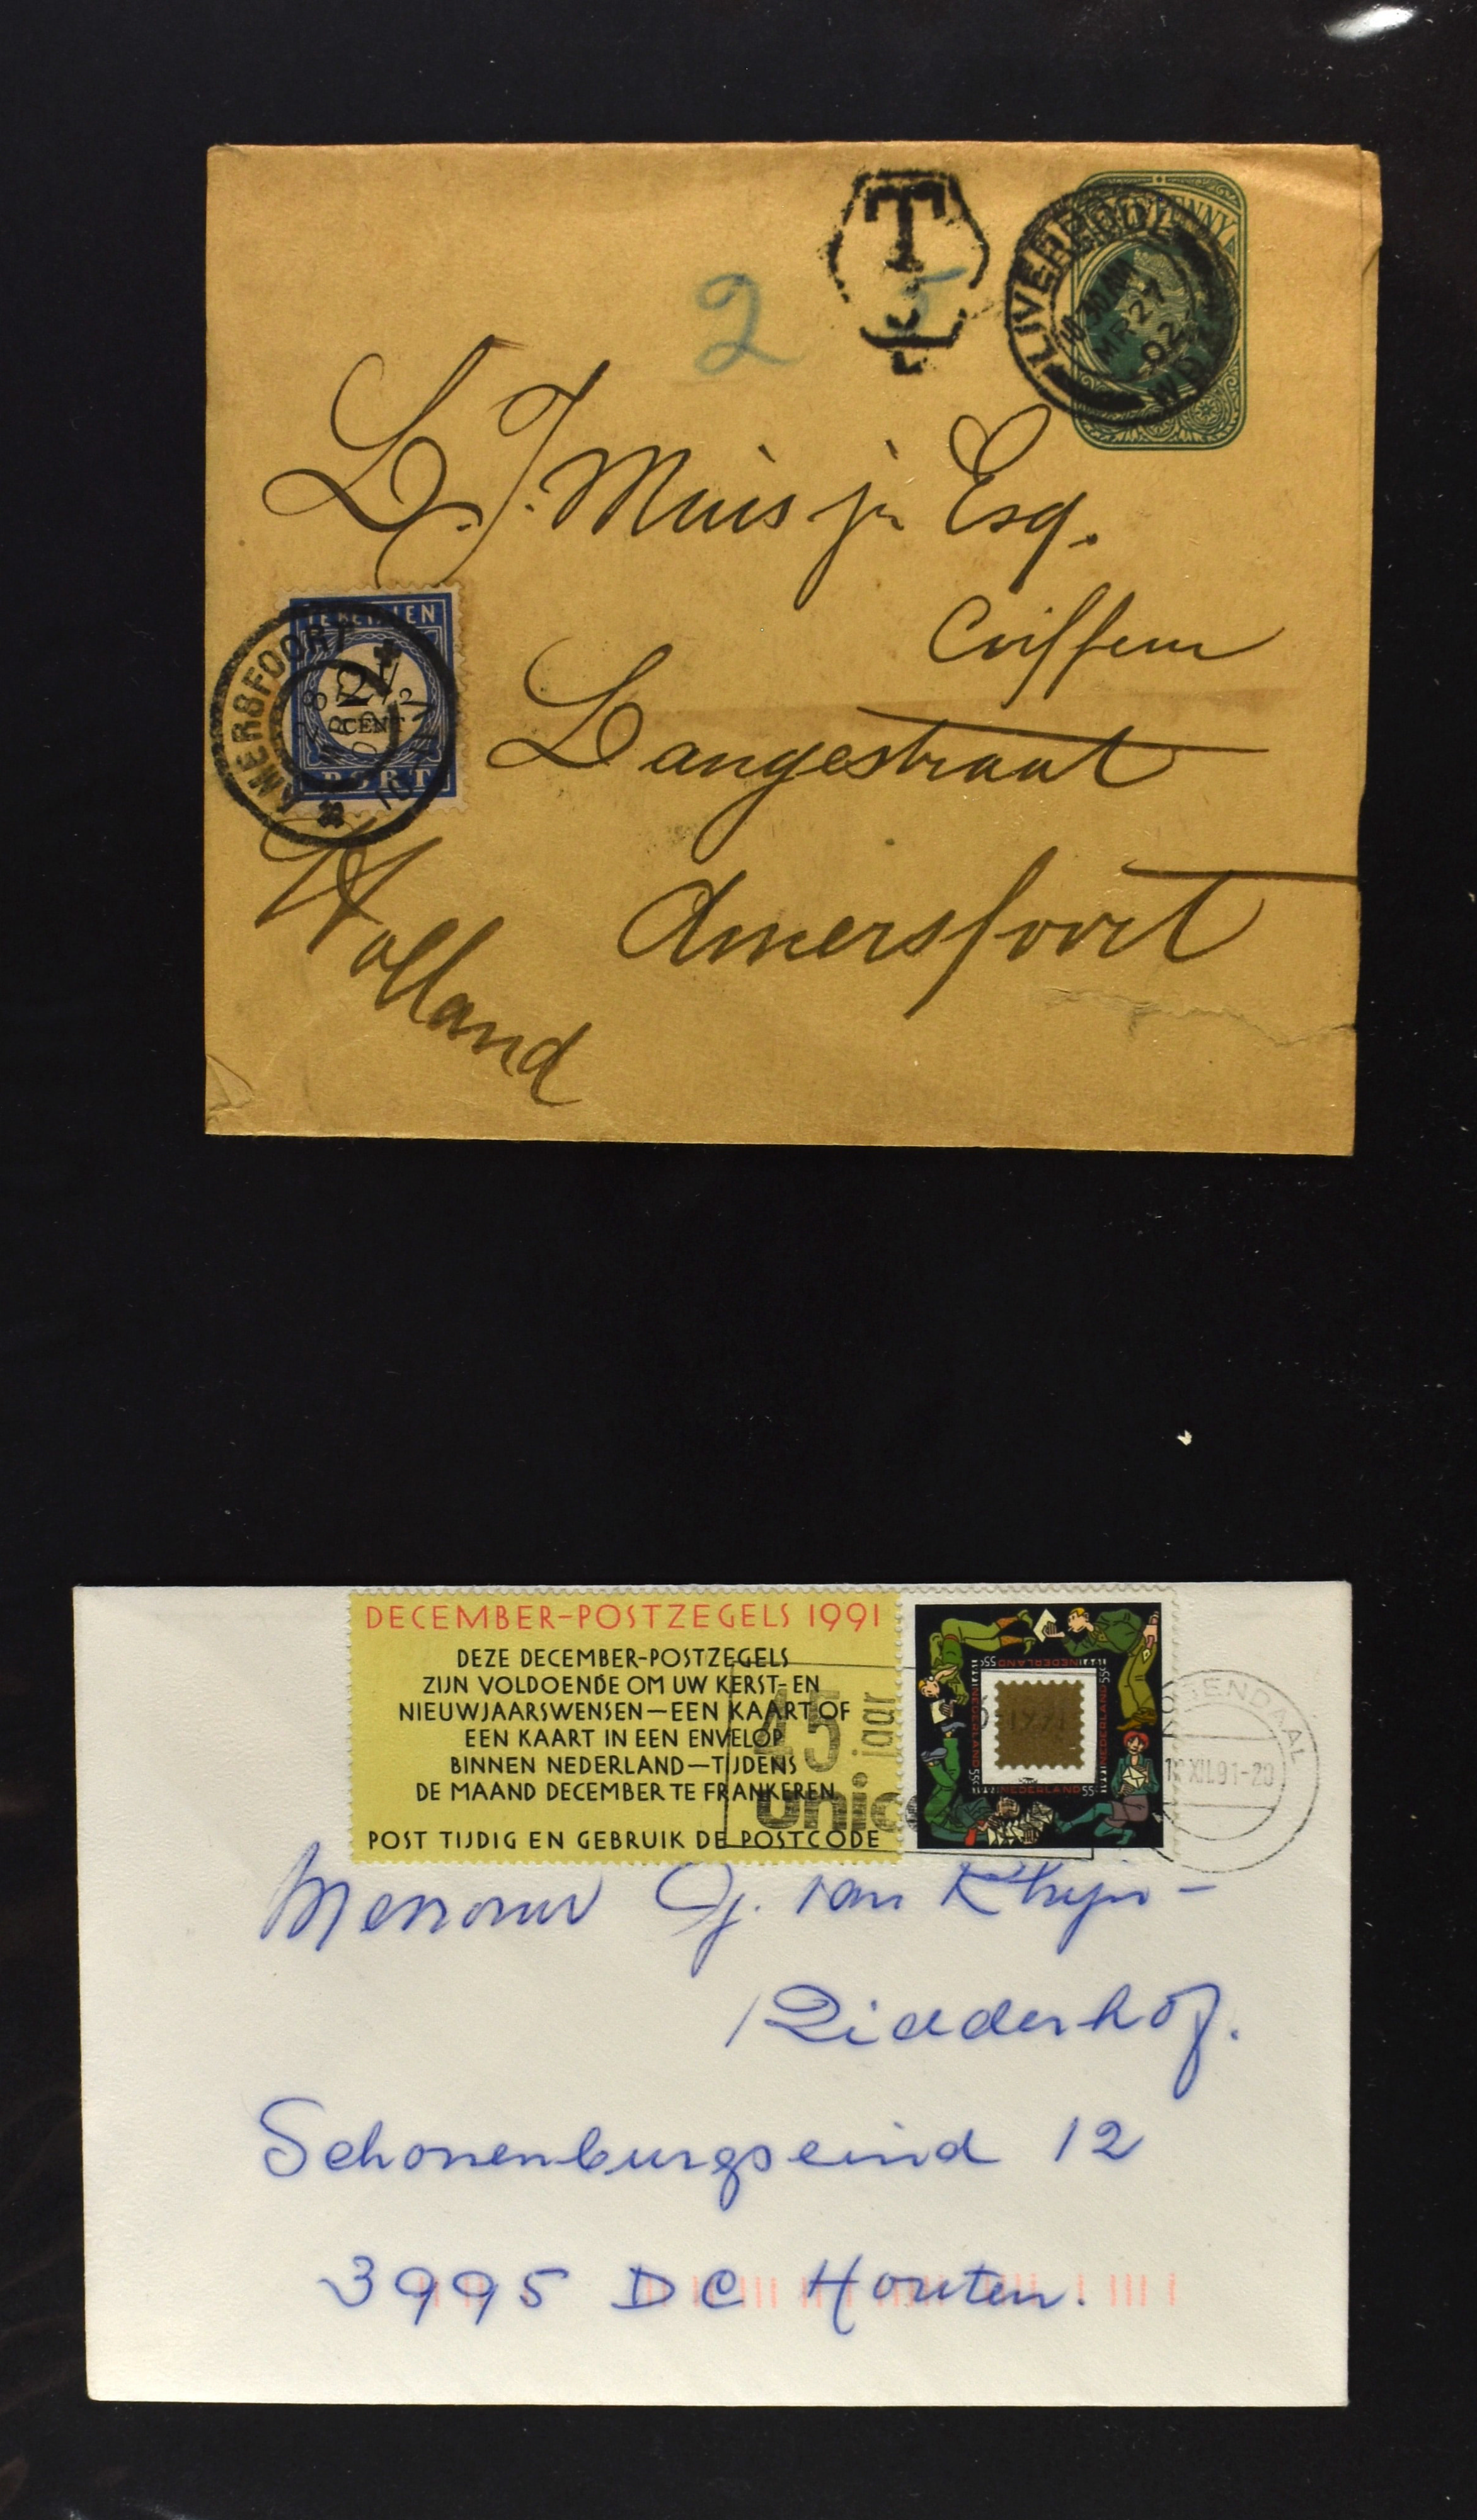 T
2 5
PENNY
LIVERPOOL
10 30 AM
MR 27
02
L. J. Muis jr Esq.
Coiffeur
TE BETALEN
CENT
PORT
AMERSFOORT
Langestraat
Amersfoort
Holland
DECEMBER-POSTZEGELS 1991
DEZE DECEMBER-POSTZEGELS
ZIJN VOLDOENDE OM UW KERST- EN
NIEUWJAARSWENSEN—EEN KAART OF
EEN KAART IN EEN ENVELOP
BINNEN NEDERLAND—TIJDENS
DE MAAND DECEMBER TE FRANKEREN.
POST TIJDIG EN GEBRUIK DE POSTCODE
45 jaar
unic
NEDERLAND 55c
NEDERLAND 55c
NEDERLAND 55c
NEDERLAND
1991
XII.91-20
Mevrouw G. J. van Rhijn-
Ridderhof.
Schonenburgseind 12
3995 DC Houten.